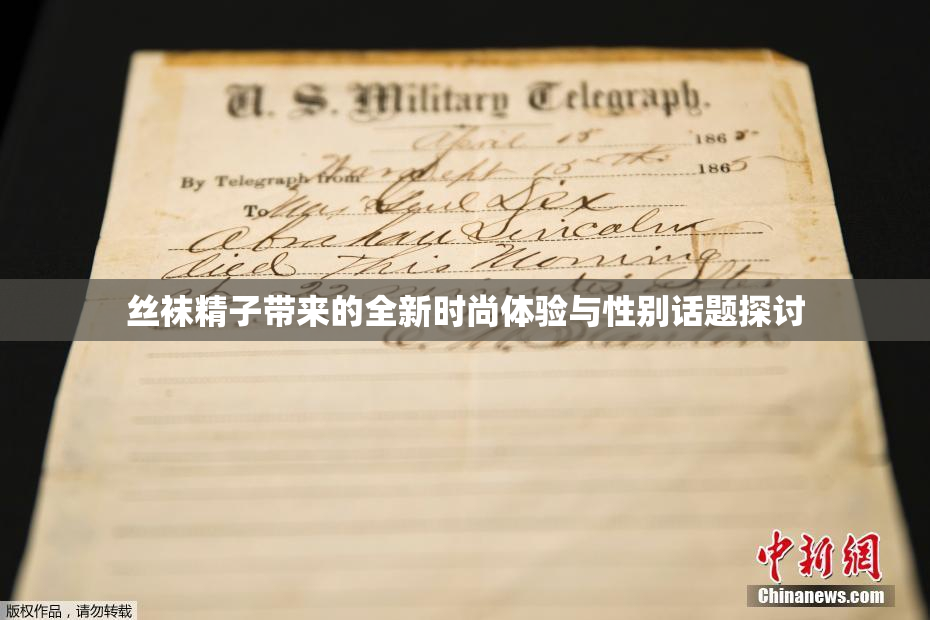 U. S. Military Telegraph.
April 15 1865
By Telegraph from War Dept 15th 1865
To Maj Genl Dix
Abraham Lincoln
died This Morning
22 minutes after
丝袜精子带来的全新时尚体验与性别话题探讨
E. M. Stanton
中新網
Chinanews.com
版权作品，请勿转载